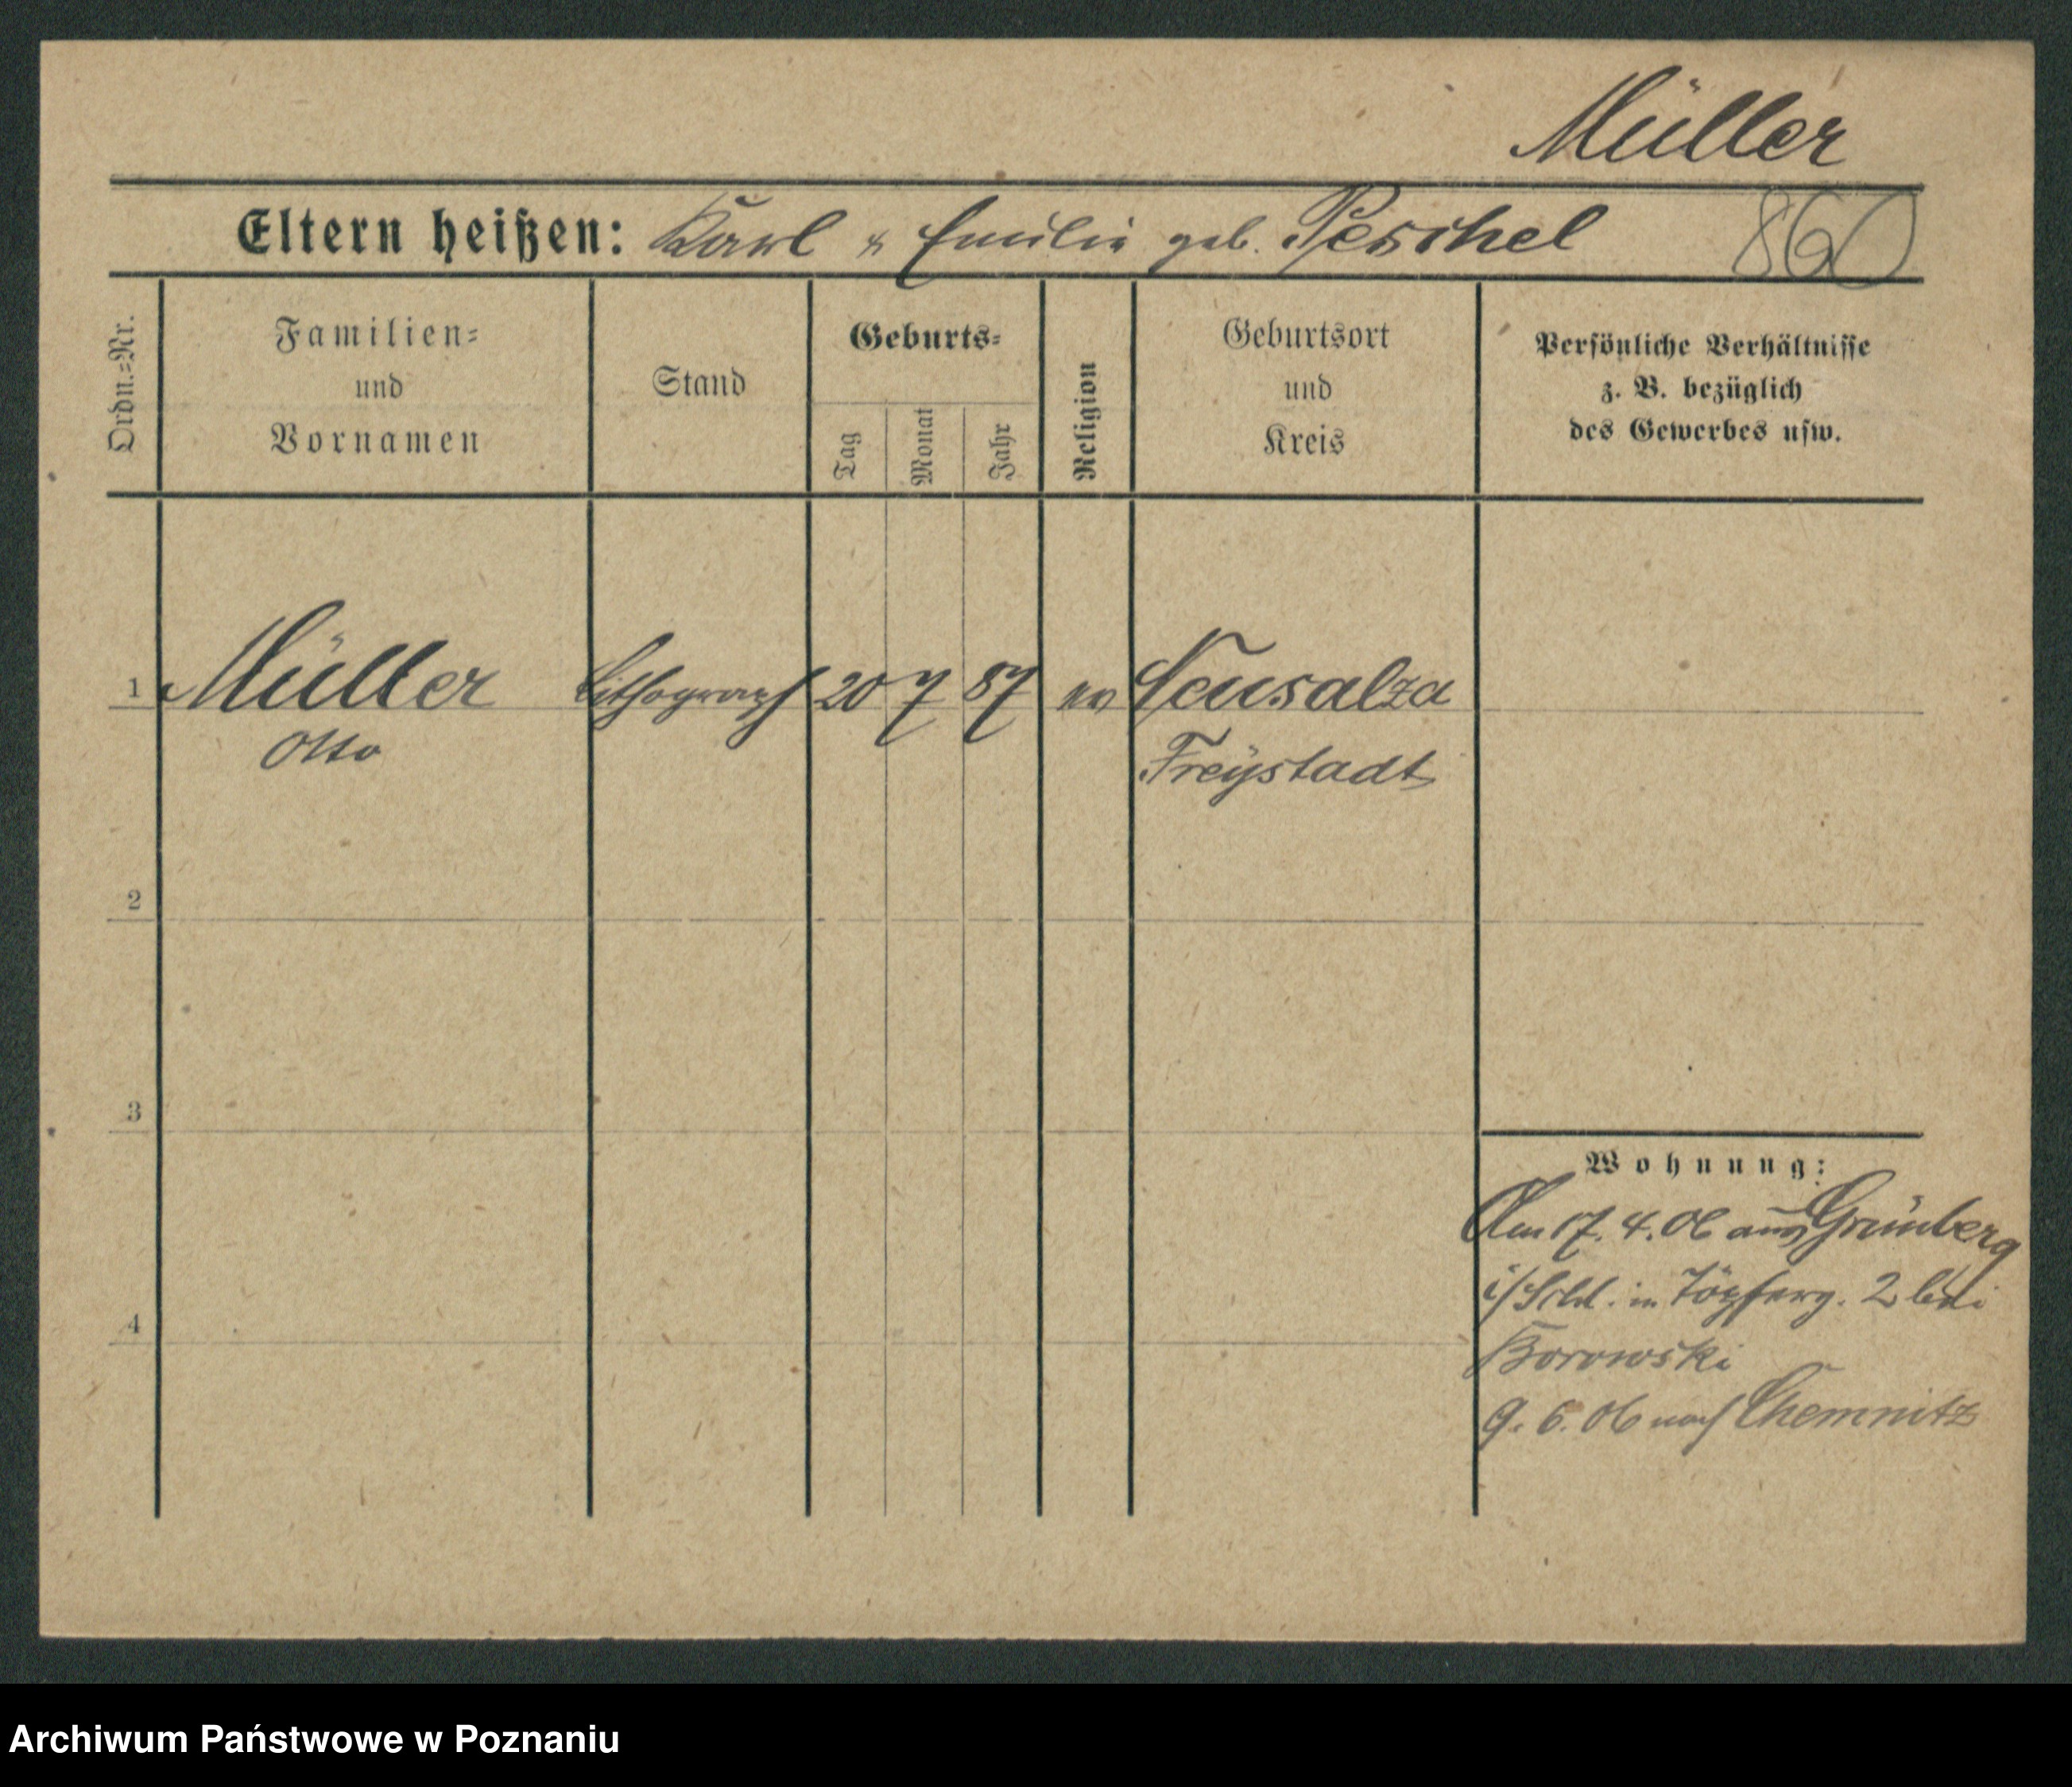 Müller
Eltern heißen: Karl & Emilie geb. Peschel
860
Ordn.-Nr.
Familien-
und
Vornamen
Stand
Geburts-
Tag
Monat
Jahr
Religion
Geburtsort
und
Kreis
Persönliche Verhältnisse
z. B. bezüglich
des Gewerbes usw.
1 Müller Lithograph 20 7 87 ev Neusalza
Otto Freystadt
2
3
4
Wohnung:
Am 17. 4. 06 aus Grünberg
i/Schl. in Töpferg. 2 bei
Borowski
9. 6. 06 nach Chemnitz
Archiwum Państwowe w Poznaniu